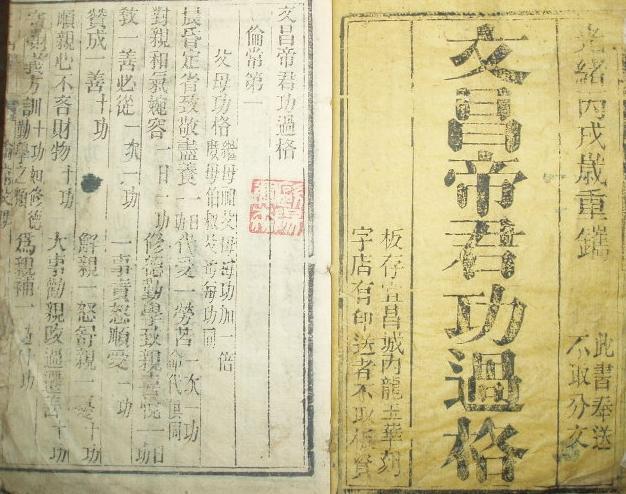 光緒丙戌歲重鐫
此書奉送
不取分文
文昌帝君功過格
板存宜昌城內龍玉華刻
字店有印送者不取板資
文昌帝君功過格
倫常第一
父母功格
繼母嗣父母每功加一倍
庶母伯叔
每功同
晨昏定省致敬盡養一日一功 代受一勞苦一次一功
對親和氣婉容一日一功 修德勤學致親喜悅一日
敎一善必從一次一功 一事責怒順受一功
贊成一善十功 解親一怒舒親一憂十功
順親心不吝財物十功 大事勸親改過遷善十功
義方訓十功如修德勤學之類 爲親補一過 功